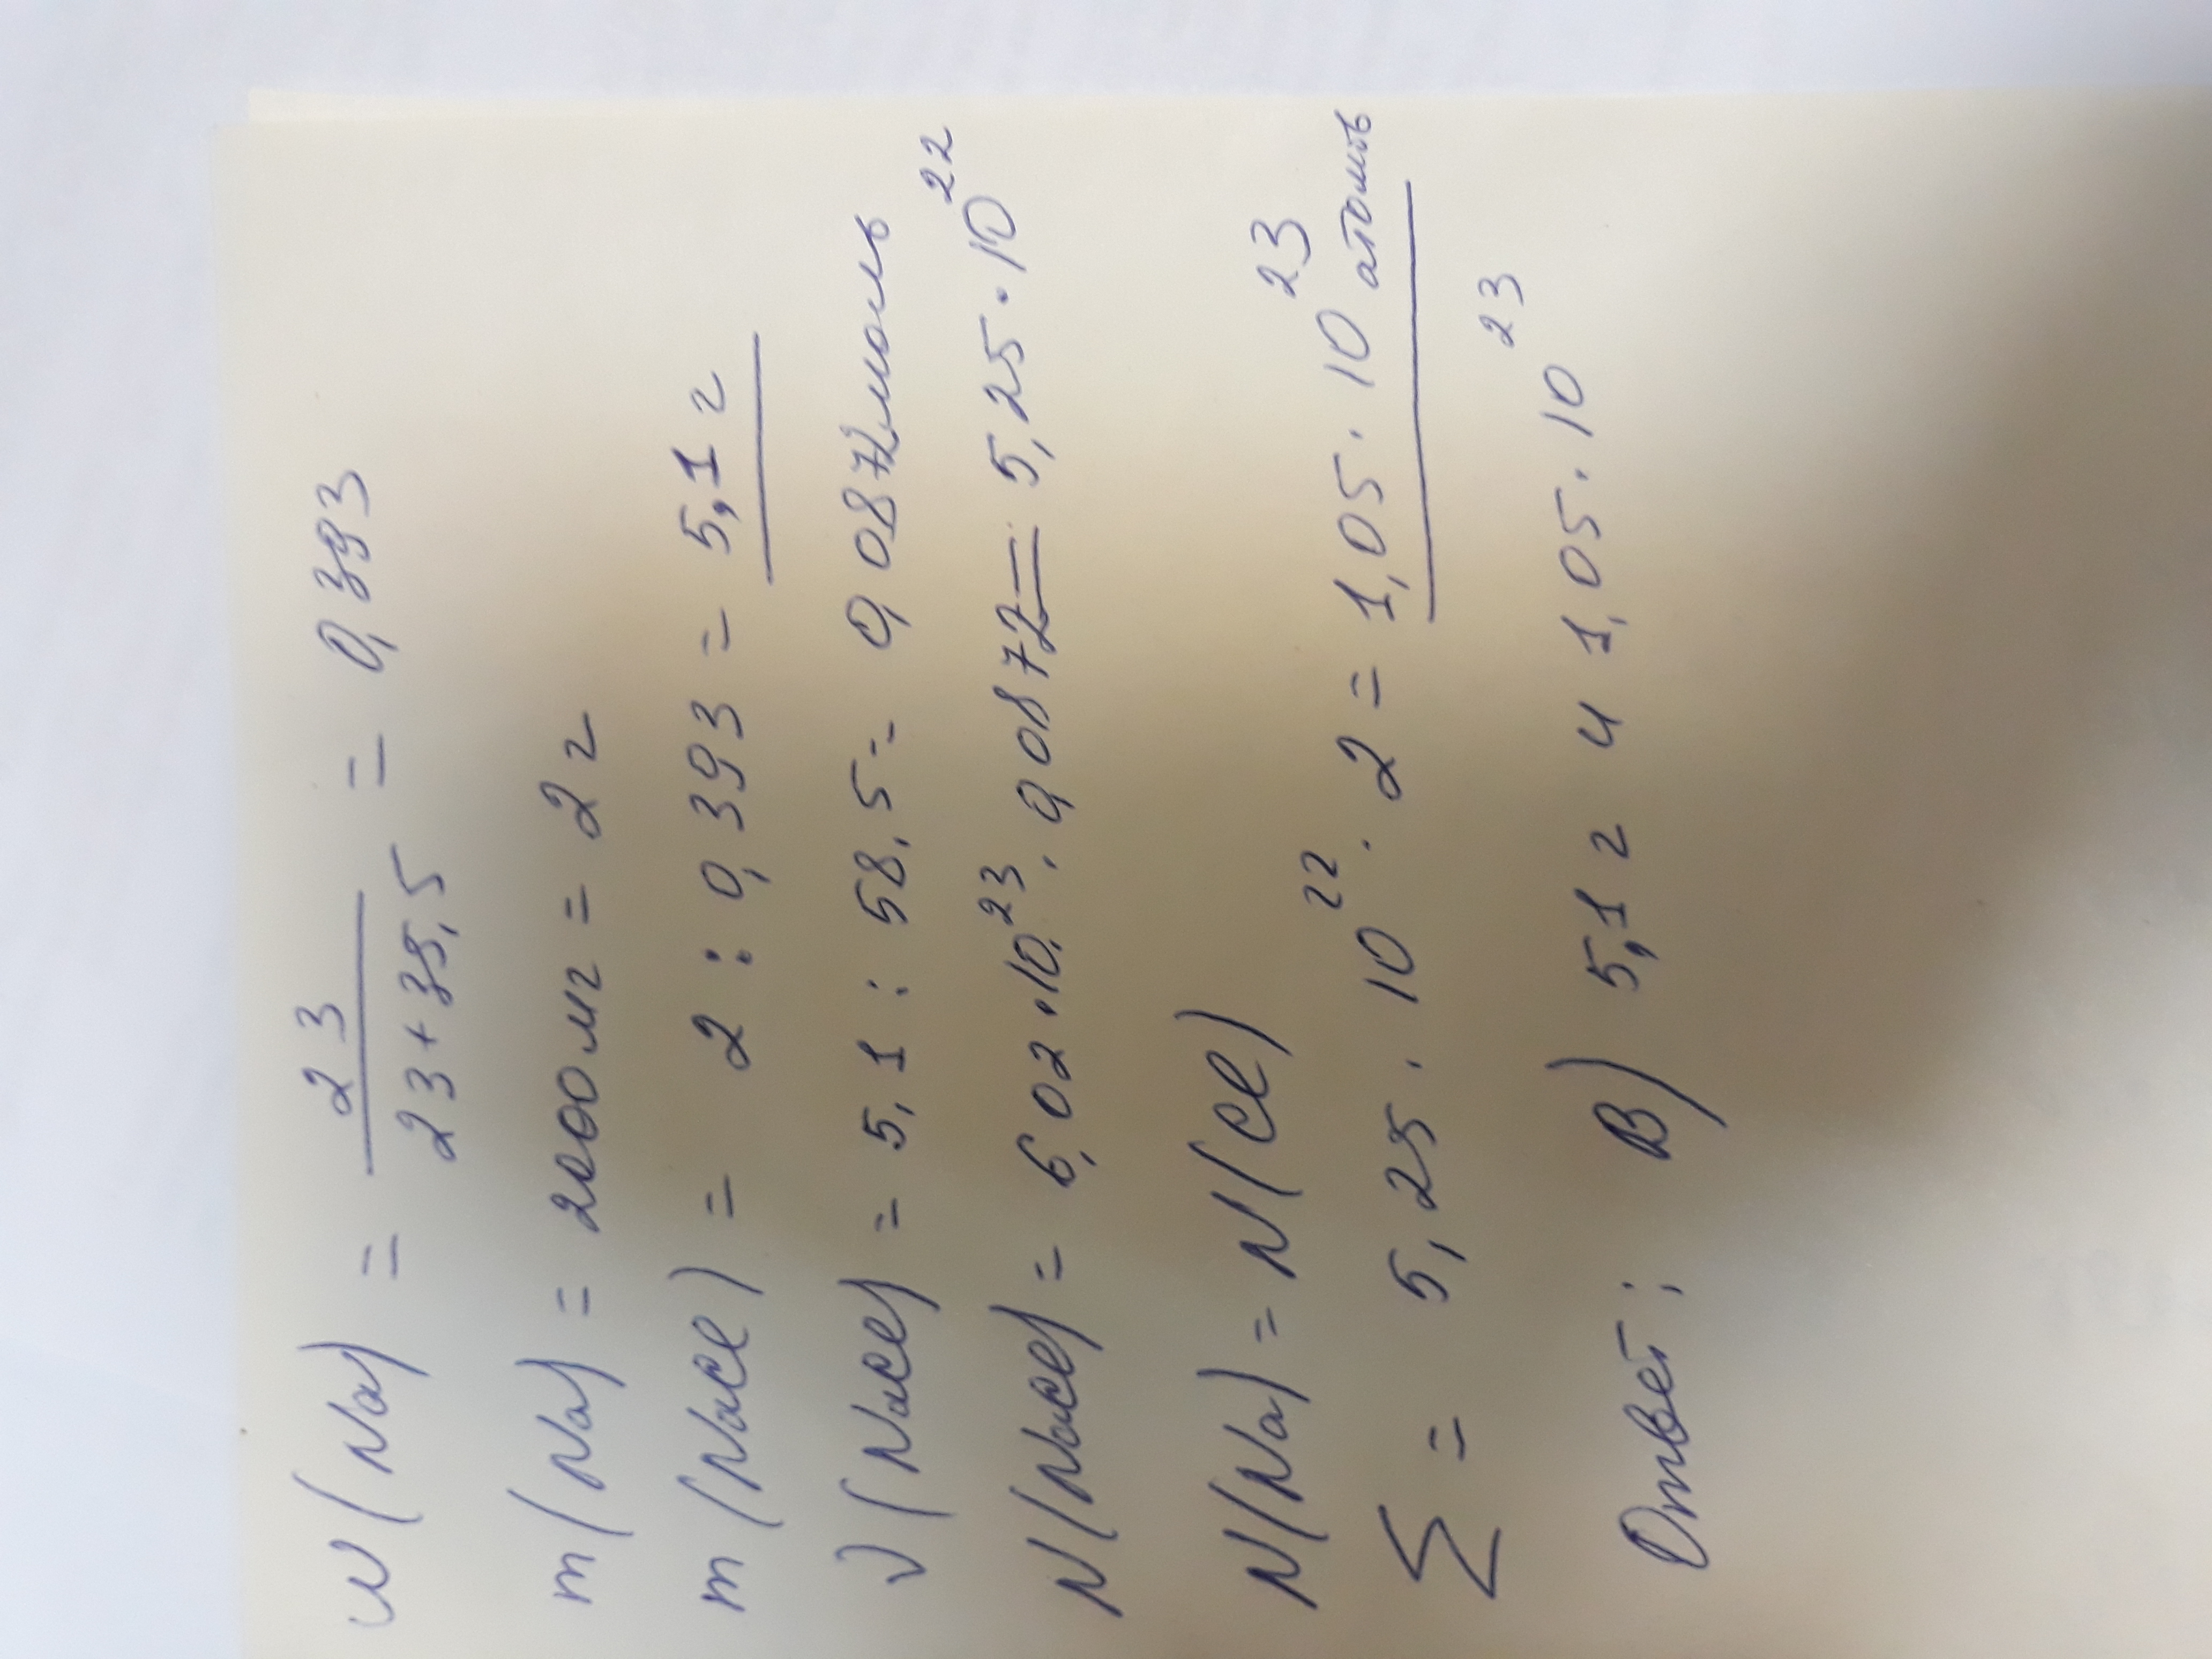 w(Na) = 23 / 23+35,5 = 0,393
m(Na) = 2000мг = 2г
m(NaCl) = 2 : 0,393 = 5,1г
ν(NaCl) = 5,1 : 58,5 = 0,0872моль
N(NaCl) = 6,02·10²³·0,0872 = 5,25·10²²
N(Na) = N(Cl)
Σ = 5,25·10²²·2 = 1,05·10²³ атомов
Ответ: В) 5,1г и 1,05·10²³